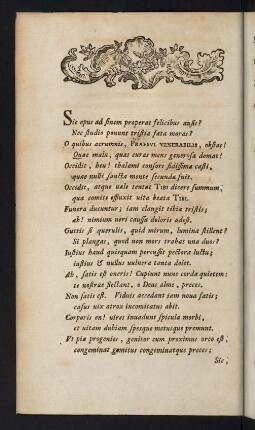 Sic opus ad finem properat felicibus ausis?
Nec studio ponunt tristia fata moras?
O quibus aerumnis, PRAESUL VENERABILIS, obstas!
Quae mala, quas curas mens generosa domat!
Occidit, heu! thalami consors fidissima casti,
quae nulli sancta mente secunda fuit.
Occidit, atque vale tentat TIBI dicere summum,
qua comite effluxit vita beata TIBI.
Funera ducuntur; iam clangit tibia tristis;
ah! nimium veri caussa doloris adest.
Guttis si querulis, quid mirum, lumina stillent?
Si plangas, quod non mors trahat una duos?
Iustius haud quisquam percussit pectora luctu;
iustius & nullus vulnera tanta dolet.
Ah, satis est oneris! Cupiunt nunc corda quietem:
te nostrae flectant, o Deus alme, preces.
Non satis est. Viduis accedant iam noua satis;
casus vix atrox incomitatus abit.
Corporis en! vires inuadunt spicula morbi,
et vitam dubiam spesque metusque premunt.
Vt pia progenies, genitor cum proximus orco est;
congeminat gemitus congeminatque preces:
Sic,